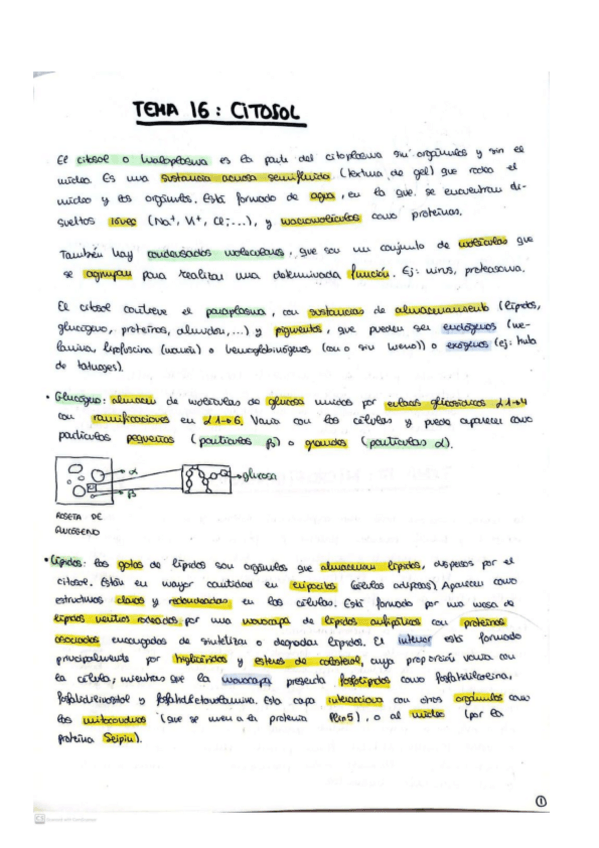 TEMA 16: CITOSOL
El citosol o hialoplasma es la parte del citoplasma sin orgánulos y sin el
núcleo. Es una sustancia acuosa semifluida (textura de gel) que rodea el
núcleo y los orgánulos. Está formado de agua, en la que se encuentran di-
sueltos iones (Na+, K+, Cl-,...), y macromoléculas como proteínas.
También hay condensados moleculares, que son un conjunto de moléculas que
se agrupan para realizar una determinada función. Ej: virus, proteasoma.
El citosol contiene el paraplasma, con sustancias de almacenamiento (lípidos,
glucógeno, proteínas, almidón,...) y pigmentos, que pueden ser endógenos (me-
lanina, lipofuscina (marrón) o hemoglobinógenos (con o sin hierro)) o exógenos (ej: tinta
de tatuajes).
• Glucógeno: almacen de moléculas de glucosa unidas por enlaces glicosídicos α1→4
con ramificaciones en α1→6. Varía con las células y puede aparecer como
partículas pequeñas (partículas β) o grandes (partículas α).
α
β
glucosa
ROSETA DE
GLUCÓGENO
• Lípidos: las gotas de lípidos son orgánulos que almacenan lípidos, dispersos por el
citosol. Están en mayor cantidad en adipocitos (células adiposas). Aparecen como
estructuras claras y redondeadas en las células. Está formado por una masa de
lípidos neutros rodeados por una monocapa de lípidos anfipáticos con proteínas
asociadas encargadas de sintetizar o degradar lípidos. El interior está formado
principalmente por triglicéridos y ésteres de colesterol, cuya proporción varía con
la célula; mientras que la monocapa presenta fosfolípidos como fosfatidilcolina,
fosfatidilinositol y fosfatidiletanolamina. Esta capa interacciona con otros orgánulos como
las mitocondrias (que se unen a la proteína Plin5), o al núcleo (por la
proteína Seipin).
1